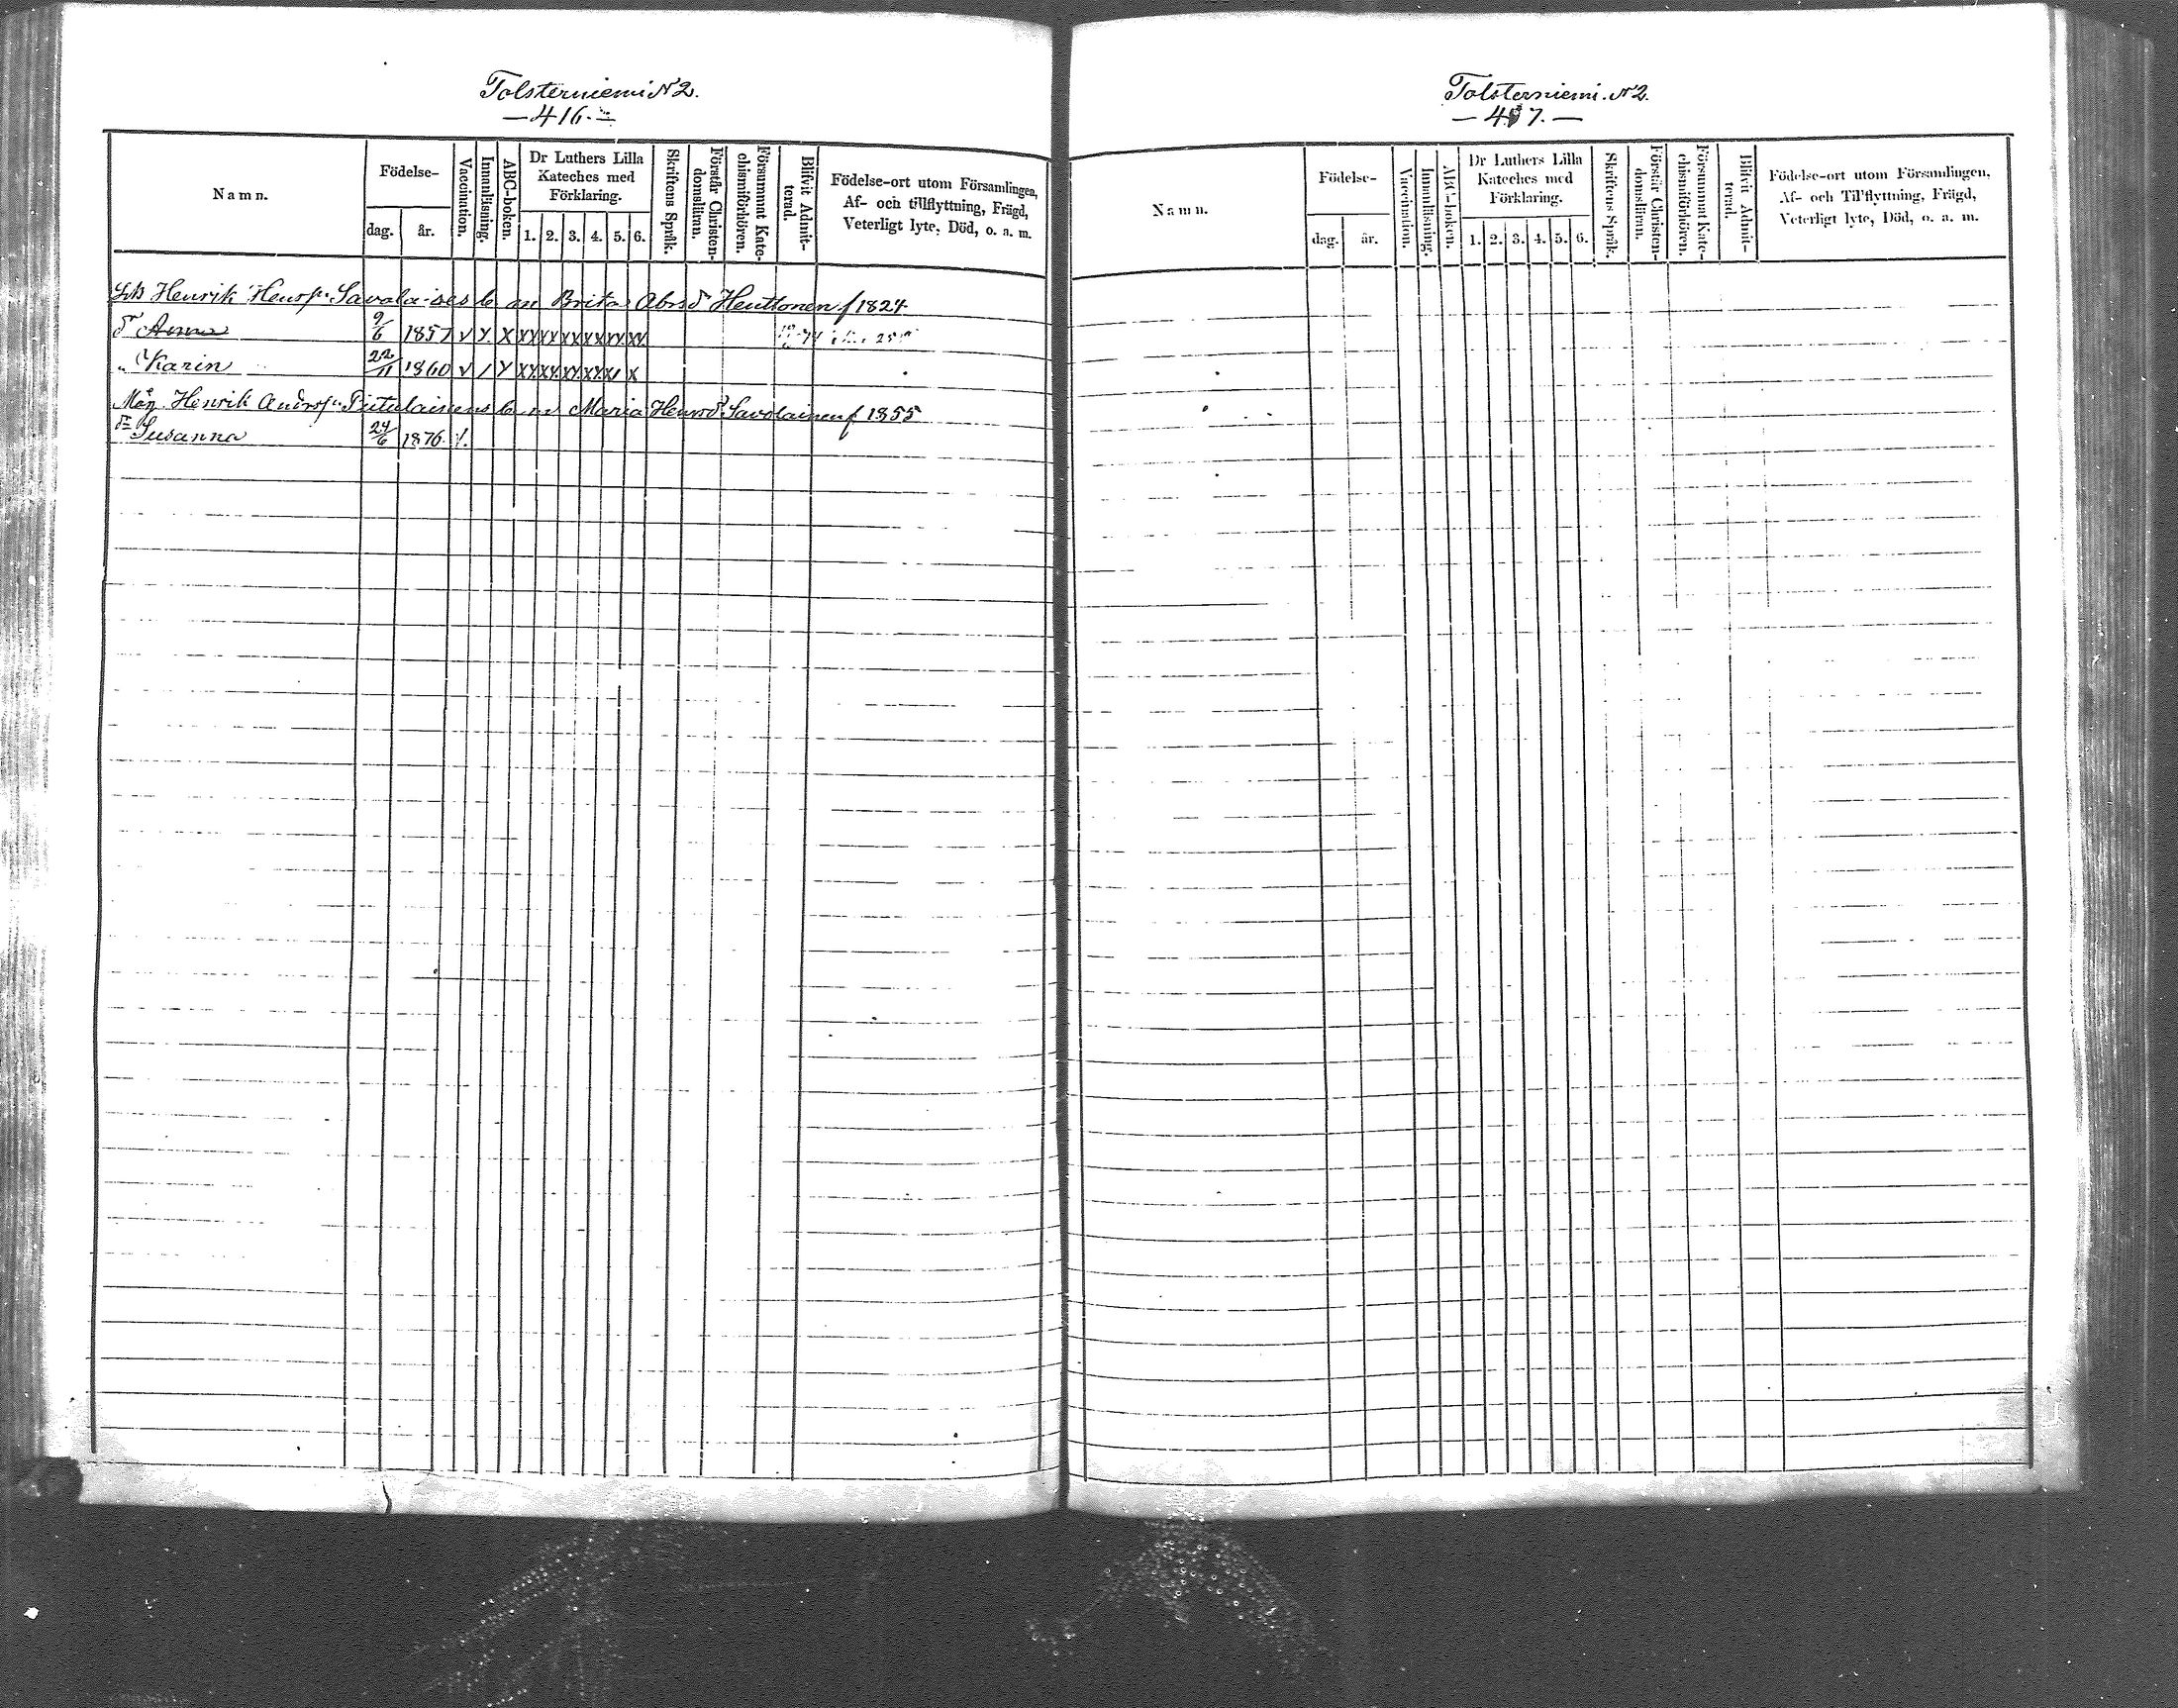 Tolsterniemi N 2.
— 416. —
Namn.
Födelse-
dag. år.
Vaccination.
Innanläsning.
ABC-boken.
Dr Luthers Lilla
Kateches med
Förklaring.
1. 2. 3. 4. 5. 6.
Skriftens Språk.
Förstår Christen-
domsläran.
Försummat Kate-
chismiförhören.
Blifvit Admit-
terad.
Födelse-ort utom Församlingen,
Af- och tillflyttning, Frägd,
Veterligt lyte, Död, o. a. m.
Henrik Henrs Savolaises b m Brita Abrsd Henttonen f 1824
dr Anna 9/6 1857 v x x xx xx xx xx xx xx
" Karin 22/11 1860 v / x xx xx xx xx x
Henrik Andrs Piitulainens b m Maria Henrsd Savolainen f 1855
dr Susanna 24/6 1876
Tolsterniemi. N 2.
— 417. —
Namn.
Födelse-
dag. år.
Vaccination.
Innanläsning.
ABC-boken.
Dr Luthers Lilla
Kateches med
Förklaring.
1. 2. 3. 4. 5. 6.
Skriftens Språk.
Förstår Christen-
domsläran.
Försummat Kate-
chismiförhören.
Blifvit Admit-
terad.
Födelse-ort utom Församlingen,
Af- och Tillflyttning, Frägd,
Veterligt lyte, Död, o. a. m.